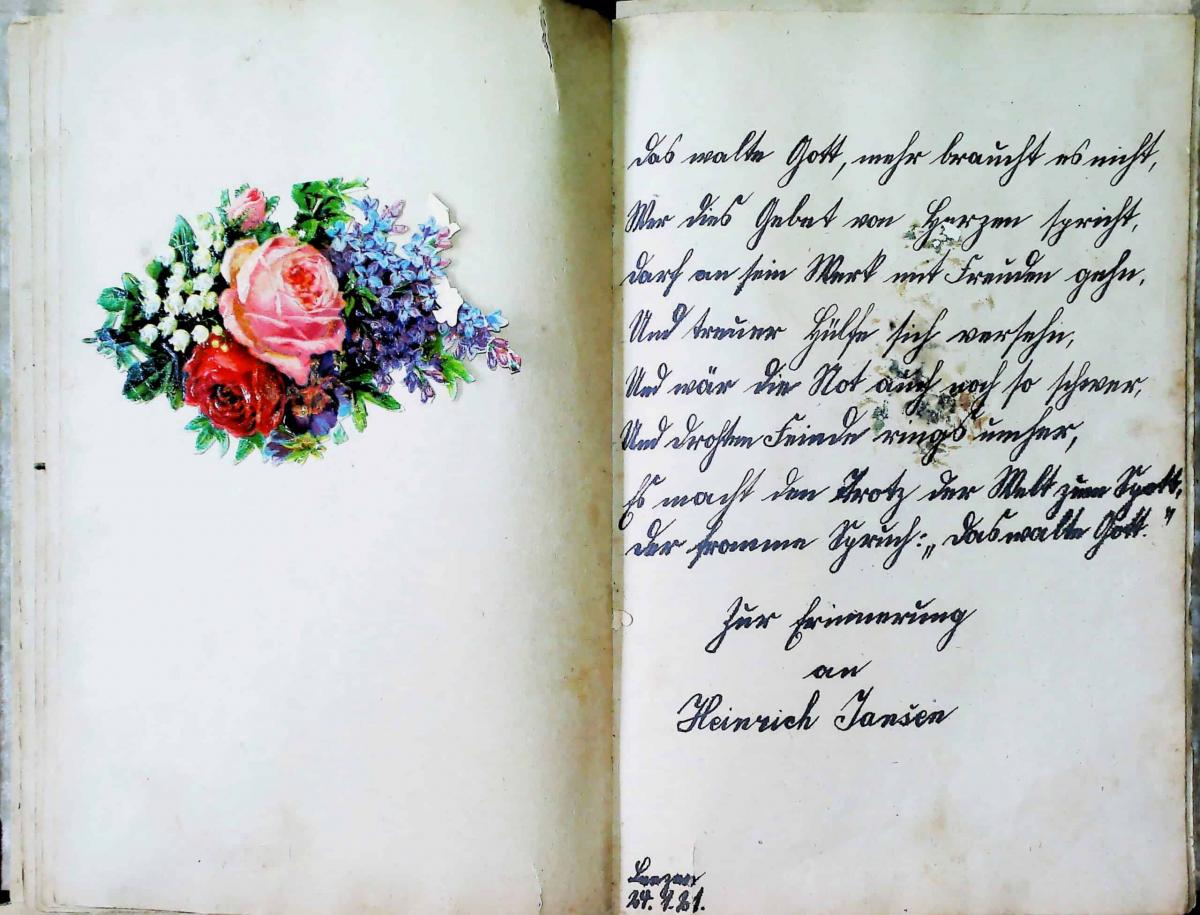 Das walte Gott, mehr braucht es nicht,
Wer dies Gebet von Herzen spricht,
Darf an sein Werk mit Freuden gehn,
Und treuer Hülfe sich versehn,
Und wär die Not auch noch so schwer,
Und drohten Feinde rings umher,
Es macht den Trotz der Welt zum Spott,
Der fromme Spruch: „Das walte Gott."
Zur Erinnerung
an
Heinrich Jansen